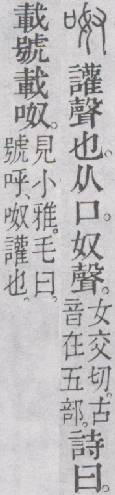 呶 讙聲也。从口。奴聲。女交切。古音在五部。詩曰。
載號載呶。見小雅。毛曰。號呼、呶讙也。